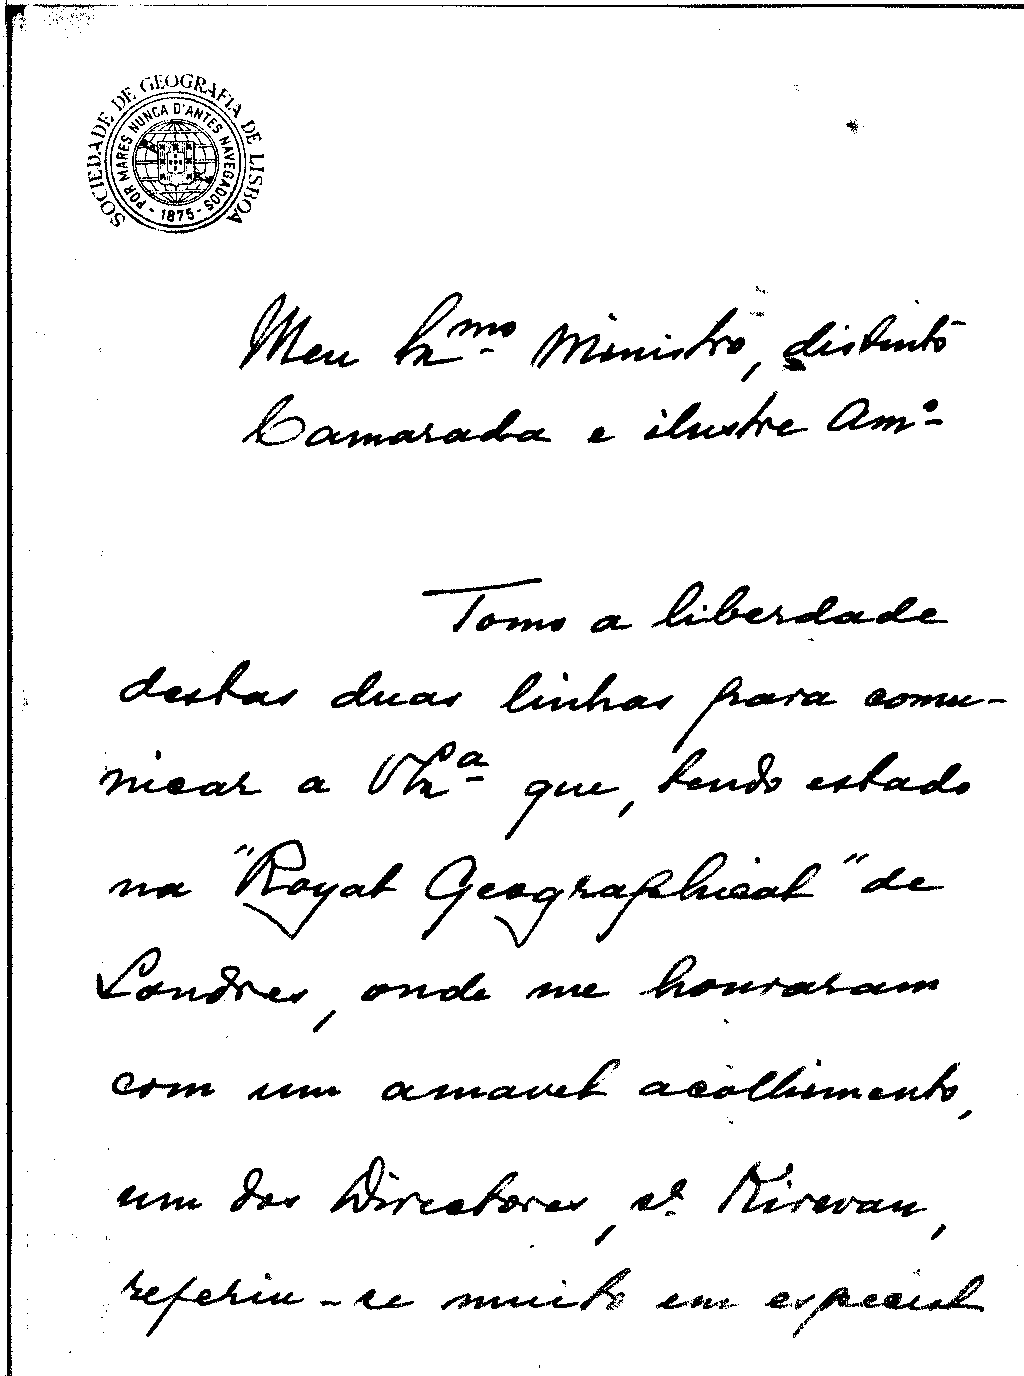 SOCIEDADE DE GEOGRAFIA DE LISBOA
POR MARES NUNCA D'ANTES NAVEGADOS
- 1875 -
Meu Exmo Ministro, distinto
Camarada e ilustre Amo
Tomo a liberdade
destas duas linhas para comu-
nicar a VExa que, tendo estado
na "Royal Geographical" de
Londres, onde me honraram
com um amavel acolhimento,
um dos Directores, sr. Kirwan,
referiu-se muito em especial